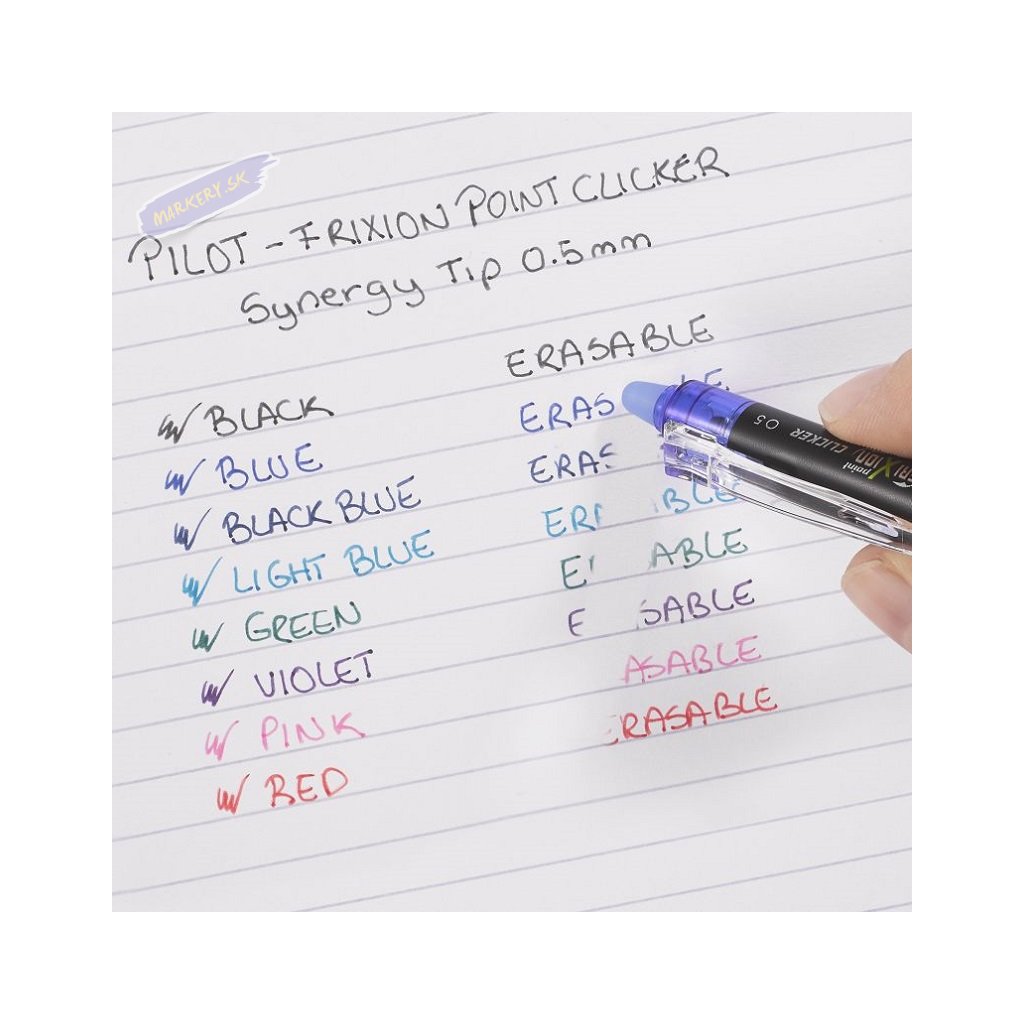 MARKERY.SK
PILOT - FRIXION POINT CLICKER
Synergy Tip 0.5mm
ERASABLE
BLACK
ERAS LE
BLUE
ERAS
BLACK BLUE
ER BLE
LIGHT BLUE
E ABLE
GREEN
E SABLE
VIOLET
ASABLE
PINK
RASABLE
RED
FRIXION point CLICKER 0.5